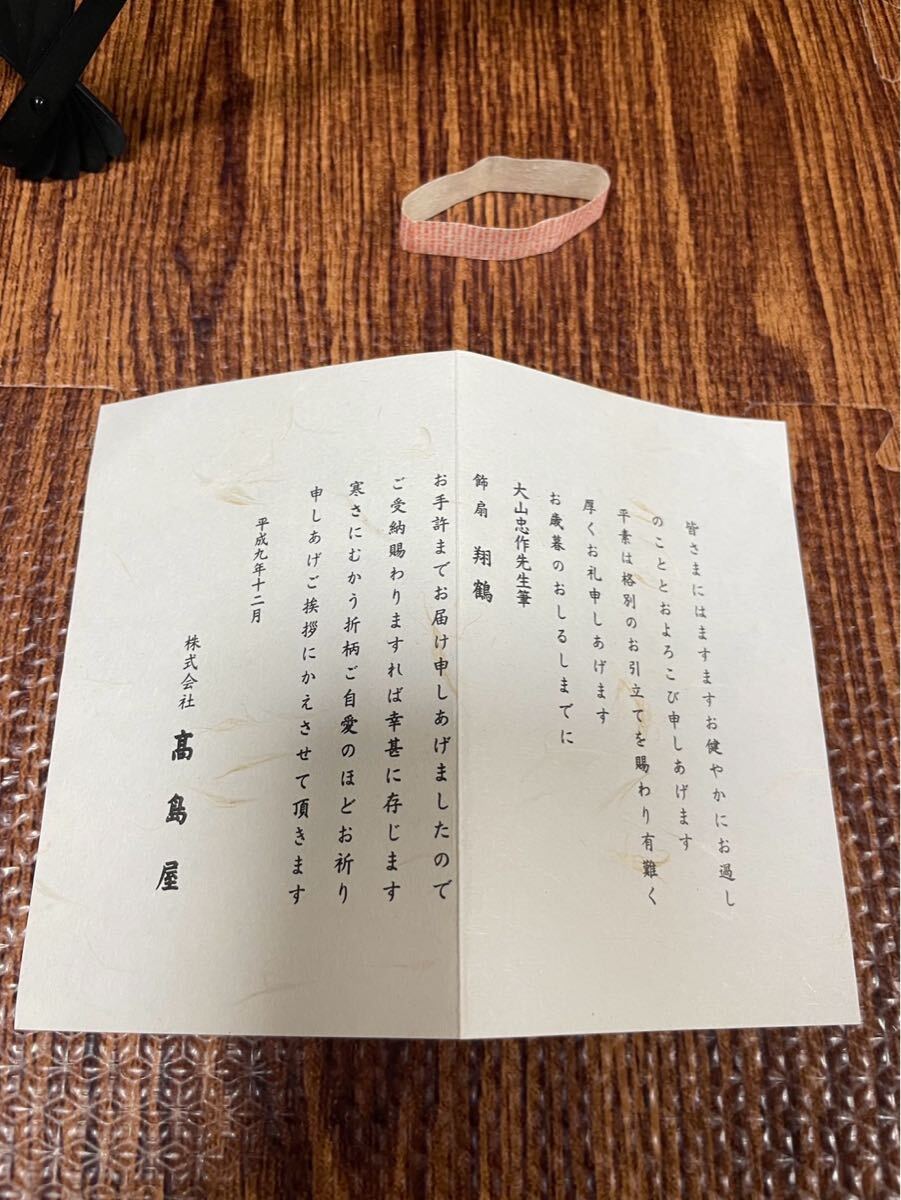 皆さまにはますますお健やかにお過し
のこととおよろこび申しあげます
平素は格別のお引立てを賜わり有難く
厚くお礼申しあげます
お歳暮のおしるしまでに
大山忠作先生筆
飾扇 翔鶴
お手許までお届け申しあげましたので
ご受納賜わりますれば幸甚に存じます
寒さにむかう折柄ご自愛のほどお祈り
申しあげご挨拶にかえさせて頂きます
平成九年十二月
株式会社 髙島屋